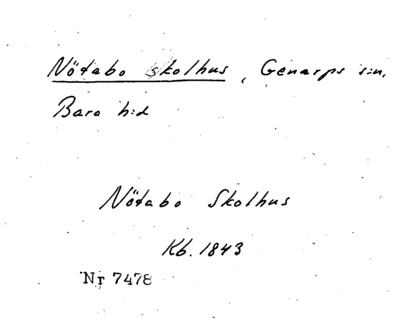 Nötabo skolhus, Genarps s:n,
Bara h:d
Nötabo Skolhus
Kb. 1843
Nr 7478